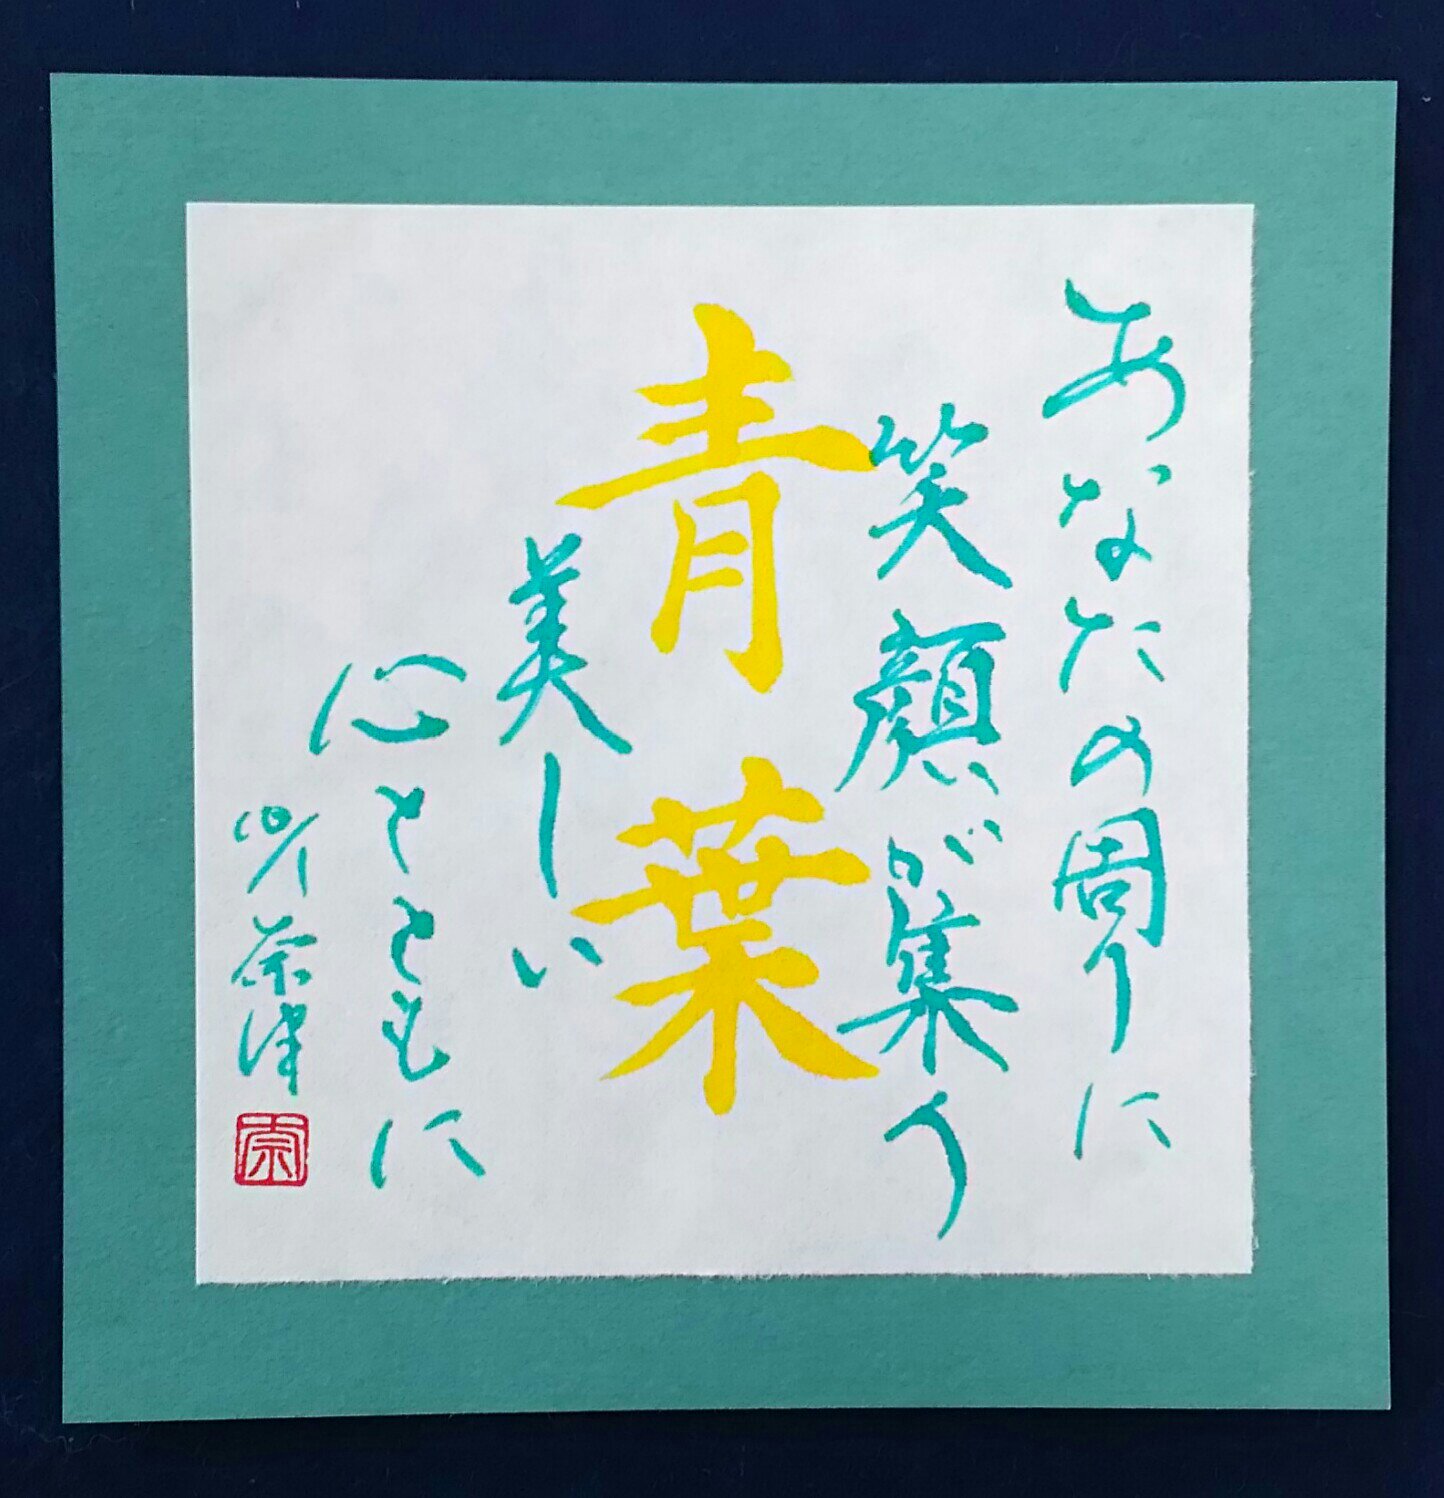 あなたの周りに
笑顔が集う
青葉
美しい
心とともに
10/1 奈津
宗